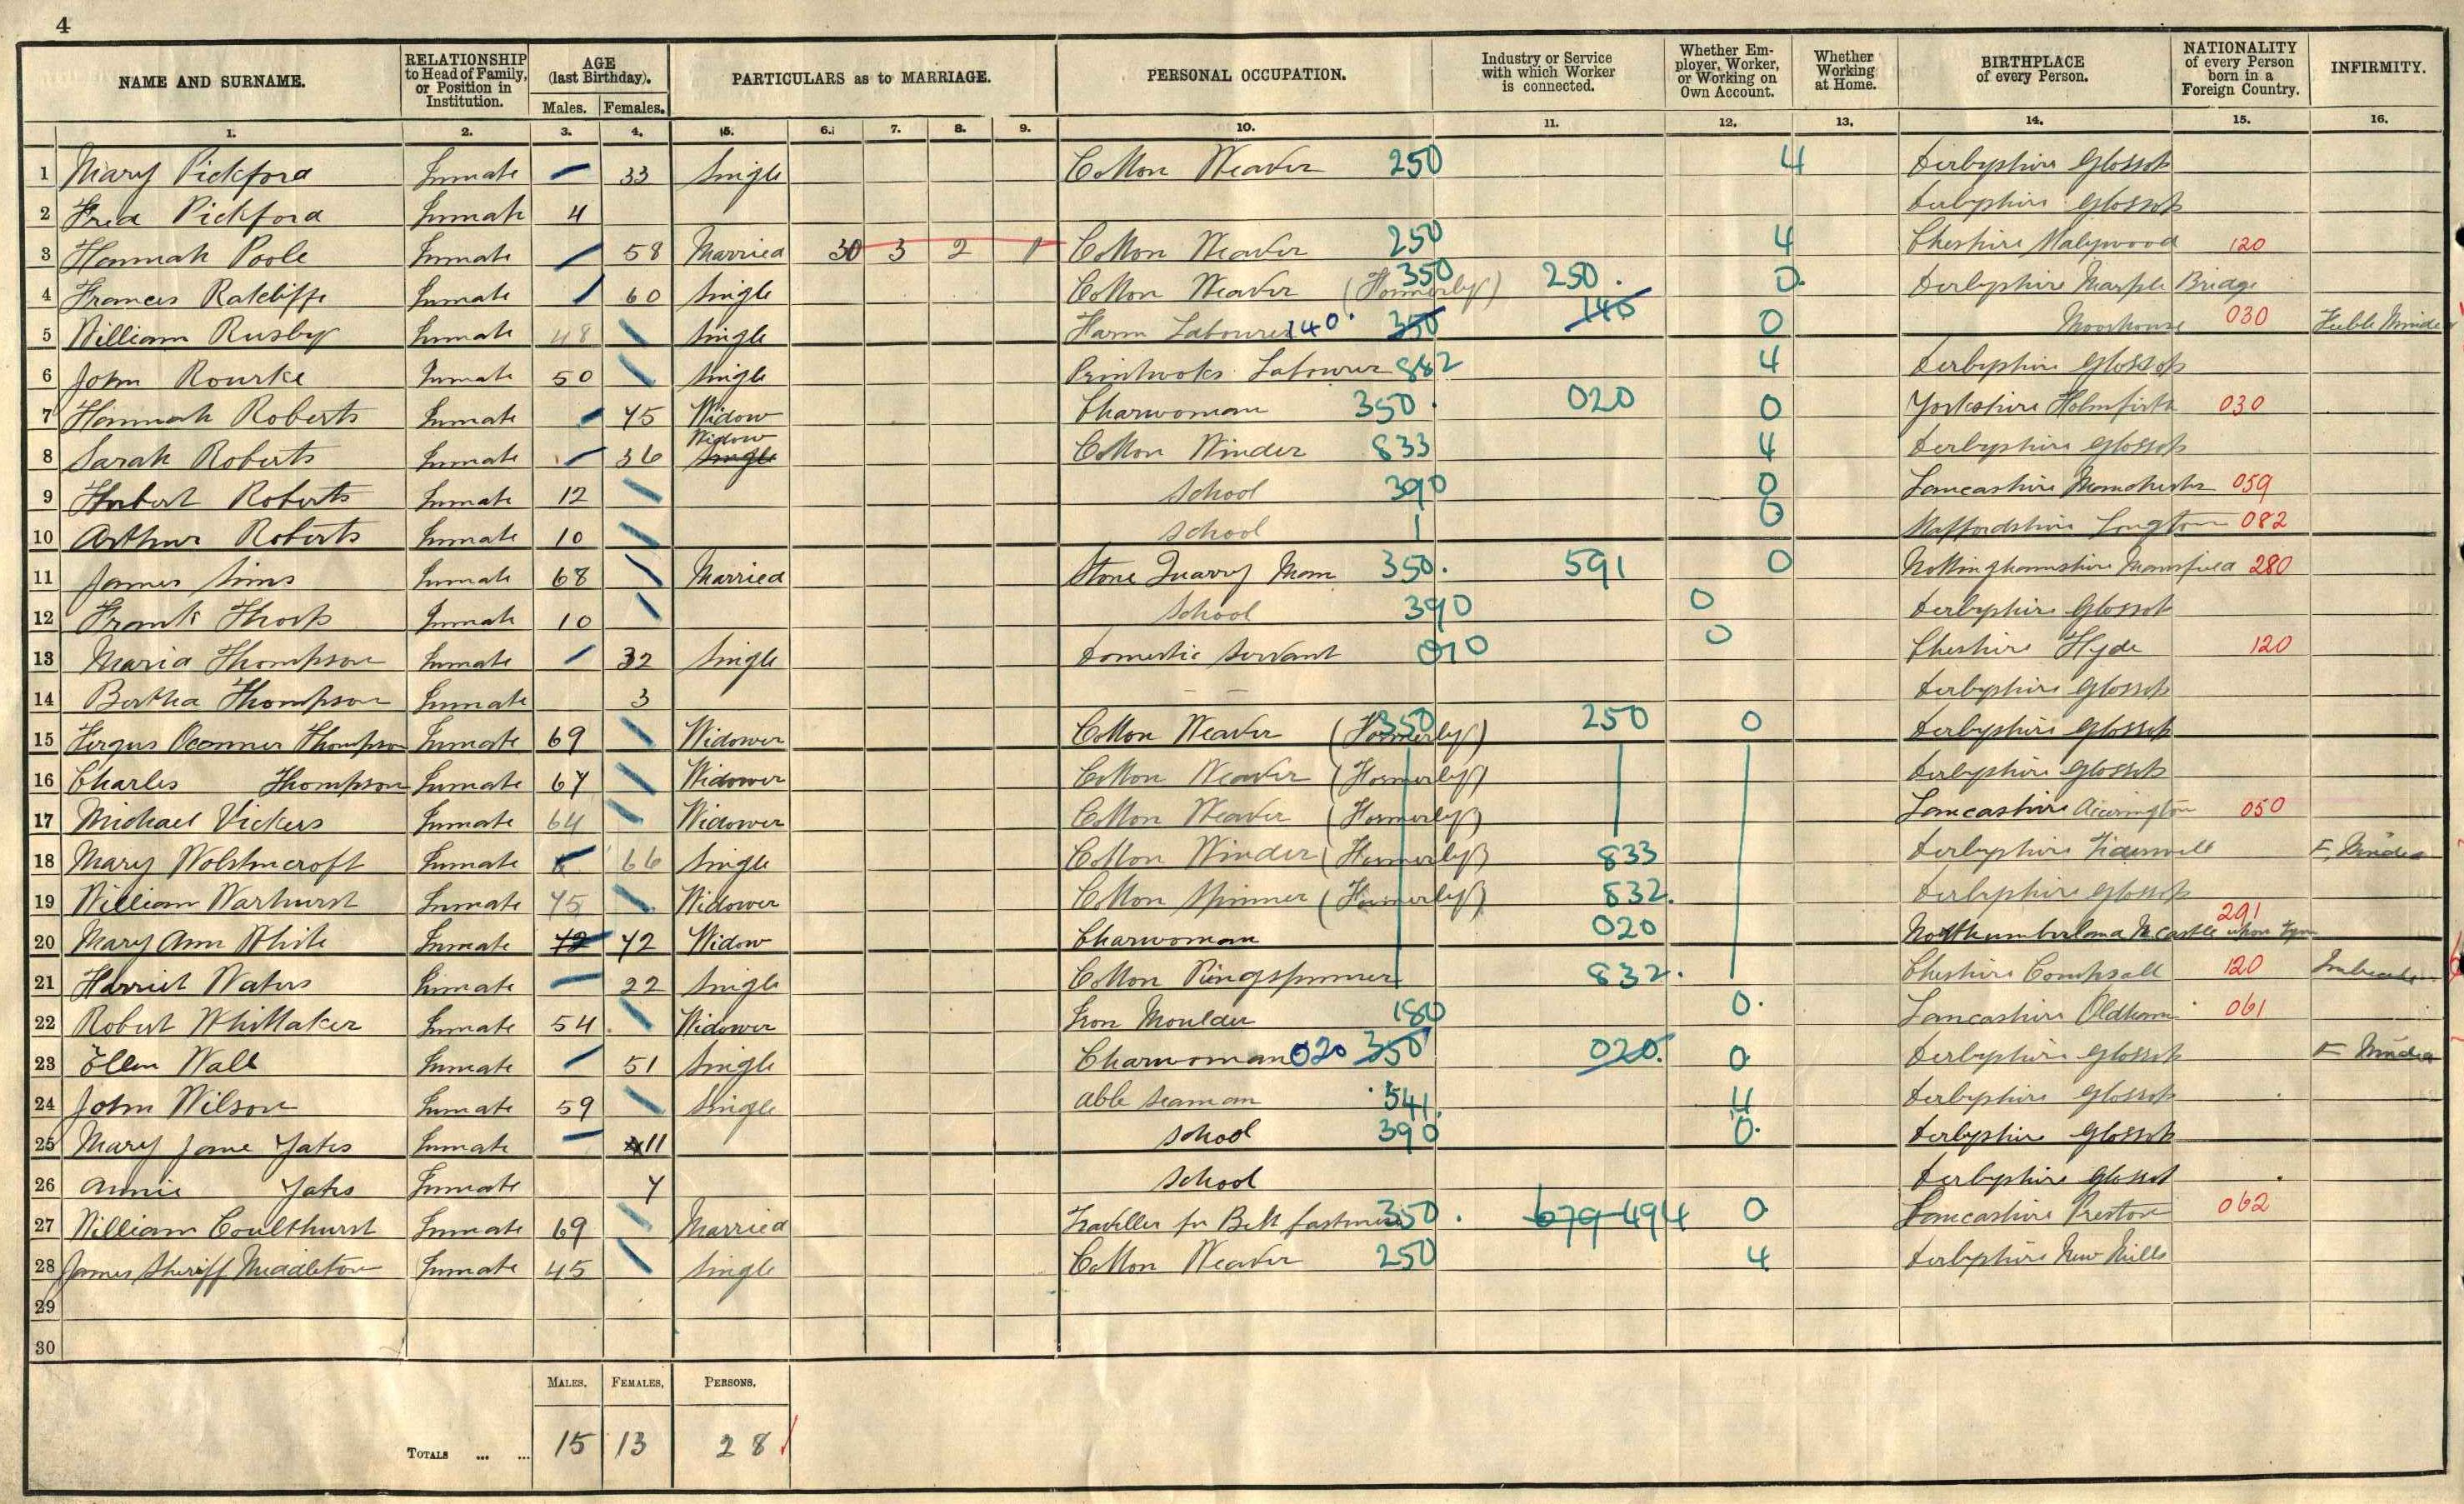 4
NAME AND SURNAME. RELATIONSHIP to Head of Family, or Position in Institution. AGE (last Birthday). Males. Females. PARTICULARS as to MARRIAGE. PERSONAL OCCUPATION. Industry or Service with which Worker is connected. Whether Employer, Worker, or Working on Own Account. Whether Working at Home. BIRTHPLACE of every Person. NATIONALITY of every Person born in a Foreign Country. INFIRMITY.
1. 2. 3. 4. 5. 6. 7. 8. 9. 10. 11. 12. 13. 14. 15. 16.
1 Mary Pickford Inmate – 33 Single Cotton Weaver 250 4 Derbyshire Glossop
2 Fred Pickford Inmate 4 Derbyshire Glossop
3 Hannah Poole Inmate 58 Married 30 3 2 1 Cotton Weaver 250 4 Cheshire 120
4 Frances Ratcliffe Inmate 60 Single Cotton Weaver (Formerly) 350 250. 0. Derbyshire Marple Bridge
5 William Rusby Inmate 48 Single Farm Labourer 140. 350 140 0 Moorhouse 030 Feeble Minded
6 John Rourke Inmate 50 Single Printwoks Labourer 882 4 Derbyshire Glossop
7 Hannah Roberts Inmate 75 Widow Charwoman 350. 020 0 Yorkshire Holmfirth 030
8 Sarah Roberts Inmate – 36 Widow Single Cotton Winder 833 4 Derbyshire Glossop
9 Herbert Roberts Inmate 12 School 390 0 Lancashire Manchester 059
10 Arthur Roberts Inmate 10 School 0 Staffordshire Longton 082
11 James Sims Inmate 68 Married Stone Quarry Man 350. 591 0 Nottinghamshire Mansfield 280
12 Frank Inmate 10 School 390 0 Derbyshire Glossop
13 Maria Thompson Inmate 32 Single Domestic Servant 010 0 Cheshire Hyde 120
14 Bertha Thompson Inmate 3 – – Derbyshire Glossop
15 Fergus Oconner Thompson Inmate 69 Widower Cotton Weaver (Formerly) 350 250 0 Derbyshire Glossop
16 Charles Thompson Inmate 67 Widower Cotton Weaver (Formerly) Derbyshire Glossop
17 Michael Vickers Inmate 64 Widower Cotton Weaver (Formerly) Lancashire Accrington 050
18 Mary Wolstncroft Inmate 66 Single Cotton Winder (Formerly) 833 Derbyshire Tideswell F. Minded
19 William Warhurst Inmate 75 Widower Cotton Spinner (Formerly) 832. Derbyshire Glossop
20 Mary Ann White Inmate 72 72 Widow Charwoman 020 Northumberland N castle upon Tyne 291
21 Harriet Waters Inmate – 22 Single Cotton Ringspinner 832. Cheshire Compsall 120 Imbecile
22 Robert Whittaker Inmate 54 Widower Iron Moulder 180 0. Lancashire Oldham 061
23 Ellen Wall Inmate 51 Single Charwoman 020 350 020. 0 Derbyshire Glossop F Minded
24 John Wilson Inmate 59 Single able seaman 541. 4 Derbyshire Glossop
25 Mary Jane Yates Inmate – 11 School 390 0. Derbyshire Glossop
26 Annie Yates Inmate 7 School Derbyshire Glossop
27 William Coulthurst Inmate 69 Married Traveller for Belt fastners 350. 679 494 0 Lancashire Preston 062
28 James Sheriff Middleton Inmate 45 Single Cotton Weaver 250 4 Derbyshire New Mills
29
30
MALES. FEMALES. PERSONS.
TOTALS ... ... 15 13 28